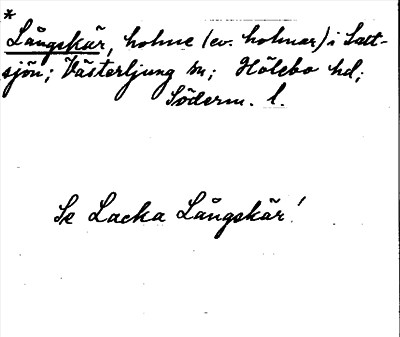 *
Långskär, holme (ev. holmar) i Latt-
sjön; Västerljung sn; Hölebo hd;
Söderm. l.
Se Lacka Långskär!